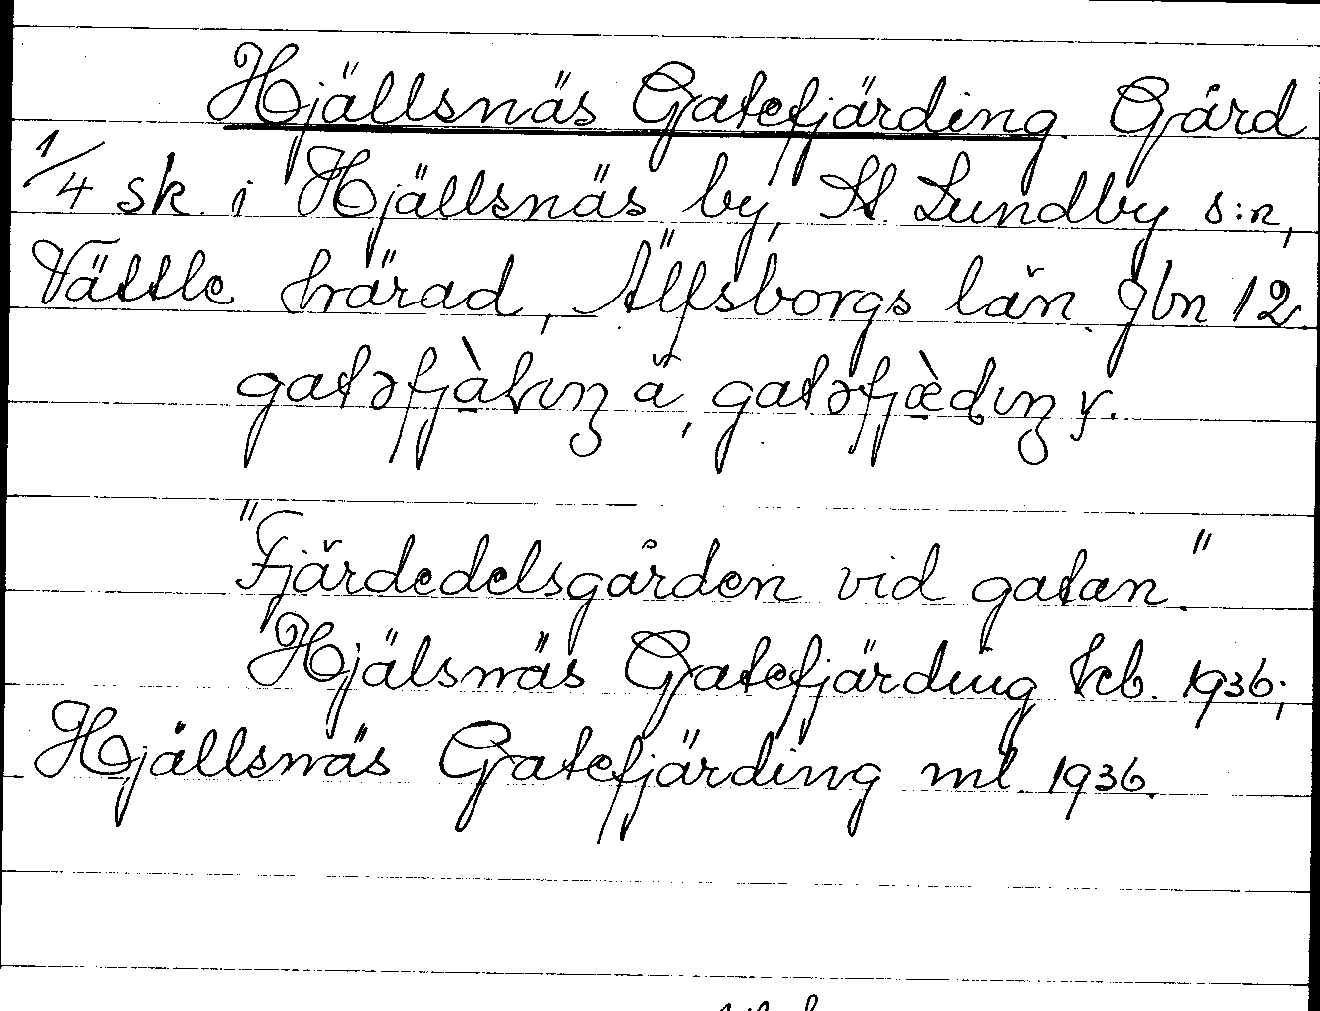 Hjällsnäs Gatefjärding Gård
1/4 sk. i Hjällsnäs by, St. Lundby s:n,
Vättle härad, Älfsborgs län. gbn 12.
gatəfjàɽıŋ ä, gatəfjæ̀dıŋ y.
"Fjärdedelsgården vid gatan."
Hjälsnäs Gatefjärding kb. 1936;
Hjällsnäs Gatefjärding ml. 1936.